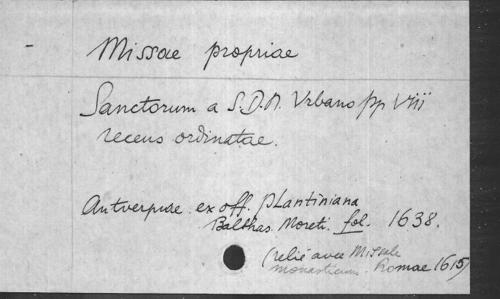 Missae propriae
Sanctorum a S.D.N. Vrbano pp Viii
recens ordinatae.
Antverpiae ex off. Plantiniana
Balthas. Moreti. fol. 1638.
(relié avec Missale
monasticum. Romae 1615)